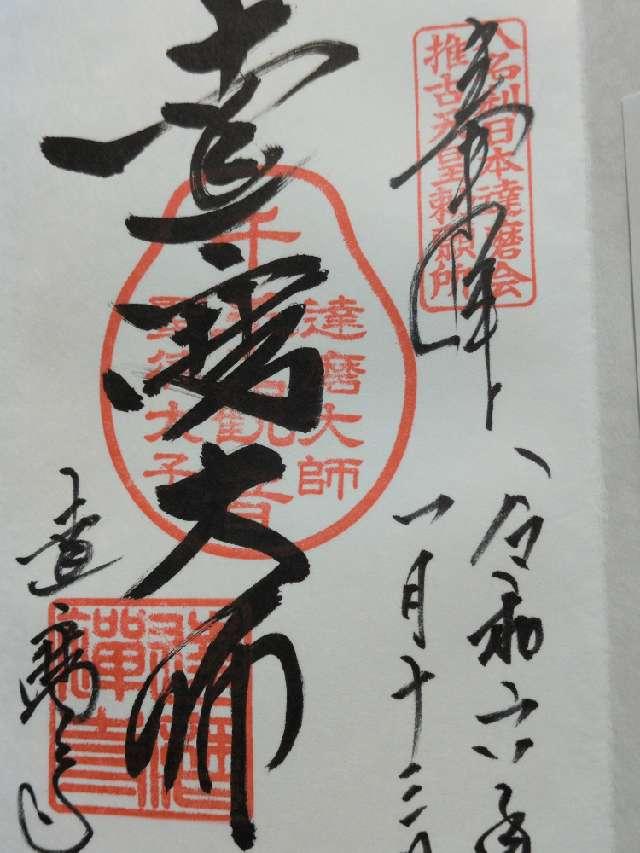 奉拝
八名刹日本達磨会
推古天皇勅願所
令和六年
一月十三日
達磨大師
達磨大師
千手観音
聖徳太子
達磨寺